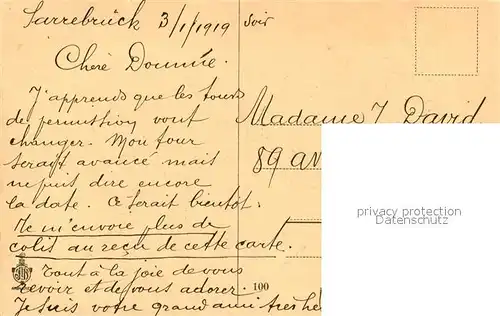 Sarrebrück 3/1/1919 soir
Chère Doumie.
J'apprends que les tours
de permission vont
changer. Mon tour
serait avancé mais
ne puis dire encore
la date. Ce serait bientôt.
Ne m'envoie plus de
colis au reçu de cette carte.
Tout à la joie de vous
revoir et de vous adorer.
Je suis votre grand ami très he
100
Madame J. David
89 av
privacy protection
Datenschutz